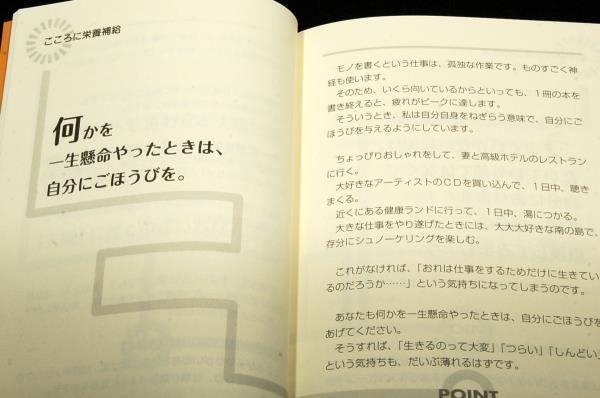 こころに栄養補給
何かを
一生懸命やったときは、
自分にごほうびを。
モノを書くという仕事は、孤独な作業です。ものすごく神
経も使います。
そのため、いくら向いているからといっても、1冊の本を
書き終えると、疲れがピークに達します。
そういうとき、私は自分自身をねぎらう意味で、自分にご
ほうびを与えるようにしています。
ちょっぴりおしゃれをして、妻と高級ホテルのレストラン
に行く。
大好きなアーティストのCDを買い込んで、1日中、聴き
まくる。
近くにある健康ランドに行って、1日中、湯につかる。
大きな仕事をやり遂げたときには、大大大好きな南の島で、
存分にシュノーケリングを楽しむ。
これがなければ、「おれは仕事をするためだけに生きてい
るのだろうか……」という気持ちになってしまうのです。
あなたも何かを一生懸命やったときは、自分にごほうびを
あげてください。
そうすれば、「生きるのって大変」「つらい」「しんどい」
という気持ちも、だいぶ薄れるはずです。
POINT